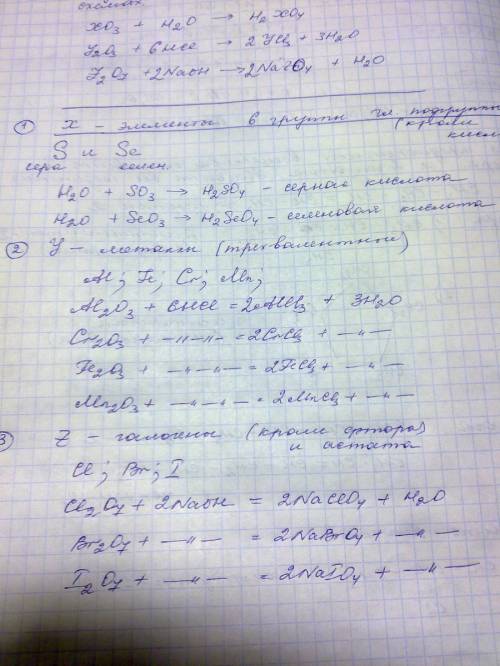 схемах.
XO₃ + H₂O → H₂XO₄
Y₂O₃ + 6HCl → 2YCl₃ + 3H₂O
Z₂O₇ + 2NaOH → 2NaZO₄ + H₂O
① X – элементы 6 группы гл. подгруппы
(кроме кисл
S и Se
сера селен.
H₂O + SO₃ → H₂SO₄ – серная кислота
H₂O + SeO₃ → H₂SeO₄ – селеновая кислота
② Y – металлы (трехвалентные)
Al; Fe; Cr; Mn;
Al₂O₃ + 6HCl = 2AlCl₃ + 3H₂O
Cr₂O₃ + —"—"— = 2CrCl₃ + —"—
Fe₂O₃ + —"—"— = 2FeCl₃ + —"—
Mn₂O₃ + —"—"— = 2MnCl₃ + —"—
3 Z – галогены (кроме фтора)
и астата
Cl; Br; I
Cl₂O₇ + 2NaOH = 2NaClO₄ + H₂O
Br₂O₇ + —"— = 2NaBrO₄ + —"—
I₂O₇ + —"— = 2NaIO₄ + —"—